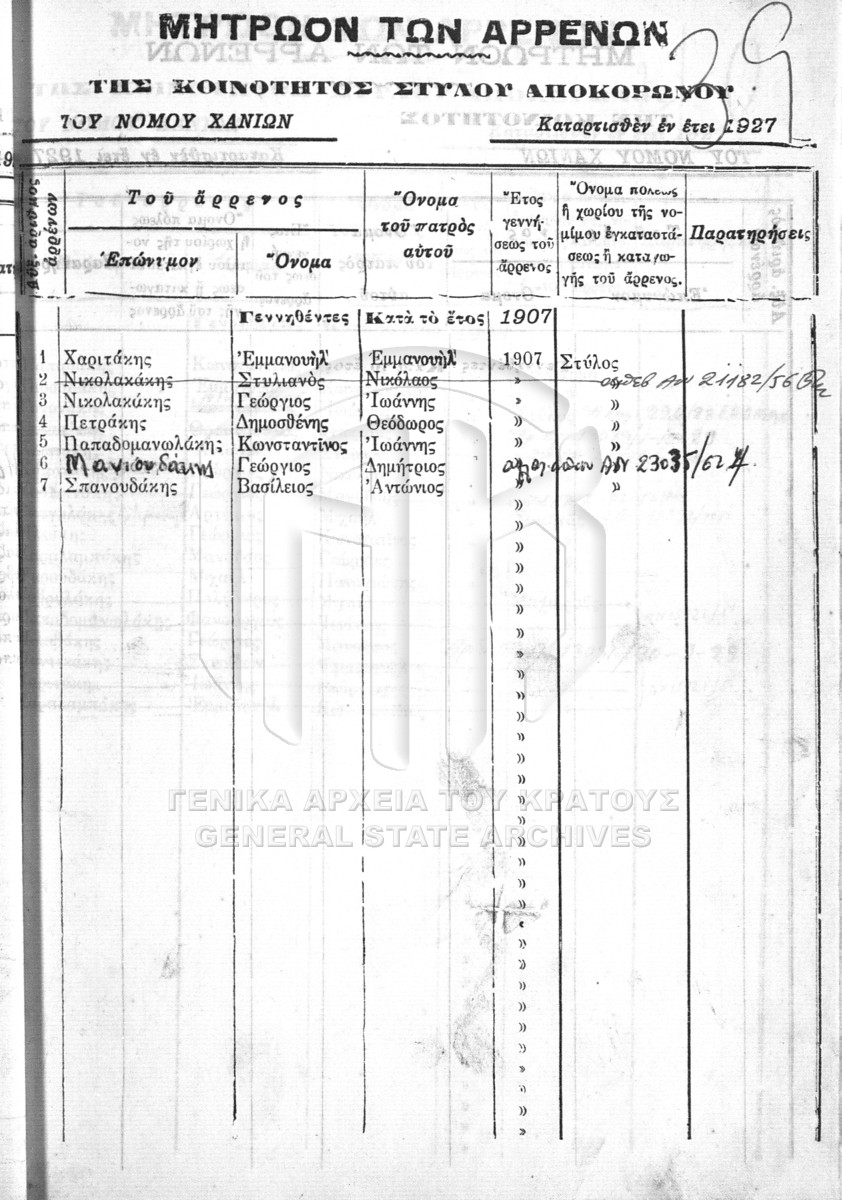 ΜΗΤΡΩΟΝ ΤΩΝ ΑΡΡΕΝΩΝ
39
ΤΗΣ ΚΟΙΝΟΤΗΤΟΣ ΣΤΥΛΟΥ ΑΠΟΚΟΡΩΝΟΥ
ΤΟΥ ΝΟΜΟΥ ΧΑΝΙΩΝ Καταρτισθὲν ἐν ἔτει 1927
Τοῦ ἄρρενος
Ἐπώνυμον Ὄνομα
Ὄνομα τοῦ πατρὸς αὐτοῦ
Ἔτος γεννή-σεως τοῦ ἄρρενος
Ὄνομα πόλεως ἢ χωρίου τῆς νο-μίμου ἐγκαταστά-σεως ἢ καταγω-γῆς τοῦ ἄρρενος.
Παρατηρήσεις
Γεννηθέντες Κατὰ τὸ ἔτος 1907
1 Χαριτάκης Ἐμμανουὴλ Ἐμμανουὴλ 1907 Στύλος
2 Νικολακάκης Στυλιανὸς Νικόλαος » » 21182/56
3 Νικολακάκης Γεώργιος Ἰωάννης » »
4 Πετράκης Δημοσθένης Θεόδωρος » »
5 Παπαδομανωλάκης Κωνσταντῖνος Ἰωάννης » »
6 Μανιουδάκης Γεώργιος Δημήτριος 23035/62
7 Σπανουδάκης Βασίλειος Ἀντώνιος » »
ΓΕΝΙΚΑ ΑΡΧΕΙΑ ΤΟΥ ΚΡΑΤΟΥΣ
GENERAL STATE ARCHIVES